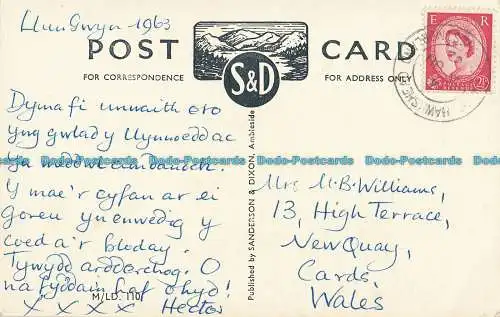 Llun Gwyn 1963
POST CARD
FOR CORRESPONDENCE
FOR ADDRESS ONLY
S&D
E R
POSTAGE
REVENUE
2½D
Dyma fi unwaith eto
yng gwlad y llynnoedd ac
Y mae'r cyfan ar ei
goreu yn enwedig y
coed a'r blodau.
Tywydd ardderchog. O
na fyddain
hyd!
X X X X Hector
M/LD. 110
Published by SANDERSON & DIXON, Ambleside
Mrs M.B. Williams,
13, High Terrace,
New Quay,
Cards,
Wales
Dodo-Postcards Dodo-Postcards Dodo-Postcards Dodo-Postcards Dodo-Postcards